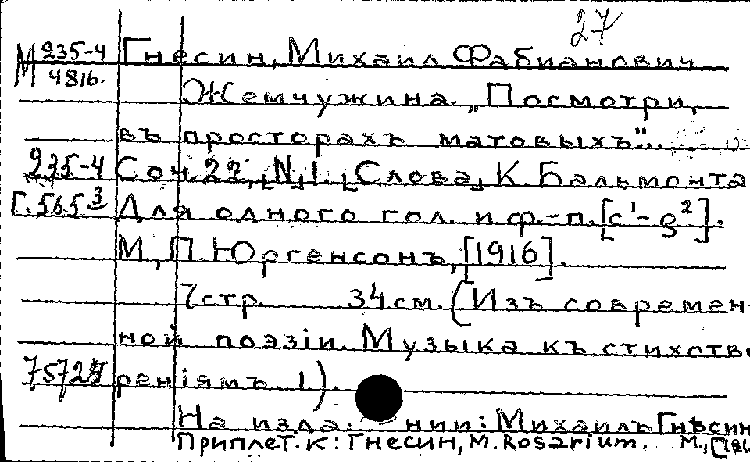 27
М 235-4 Гнесин, Михаил Фабианович
481б.
Жемчужина. „Посмотри,
въ просторахъ матовыхъ"...
235-4 Соч. 22, №1. Слова К. Бальмонта
Г. 565-3 Для одного гол. и ф.-п. [c¹-g²].
М., П. Юргенсонъ, [1916].
7 стр. 34 см. (Изъ современ-
ной поэзіи. Музыка къ стихотво-
реніямъ 1).
На изда нии: Михаилъ Гнѣсин
Приплет. к: Гнесин, М. Rosarium. М.,